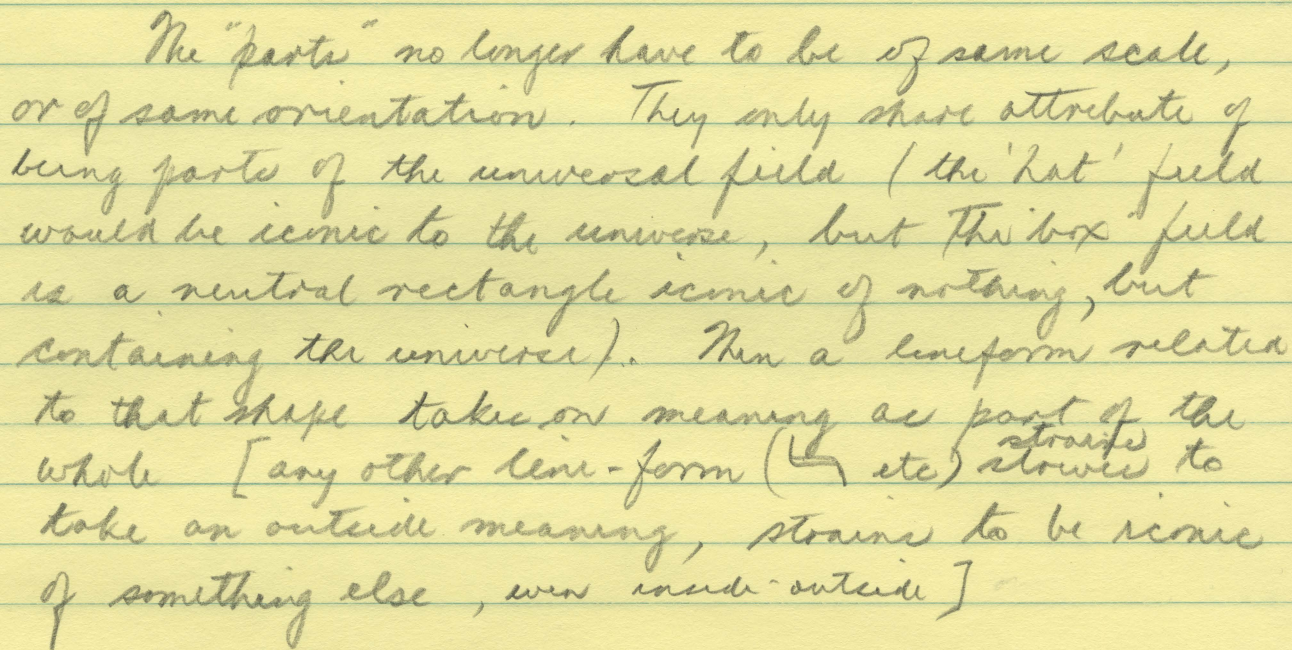 The "parts" no longer have to be of same scale,
or of same orientation. They only share attribute of
being parts of the universal field (the 'hat' field
would be iconic to the universe, but The 'box' field
is a neutral rectangle iconic of nothing, but
containing the universe). Then a lineform related
to that shape takes on meaning as part of the
whole [any other line-form ( etc) strains to
take an outside meaning, strains to be iconic
of something else, even inside-outside]